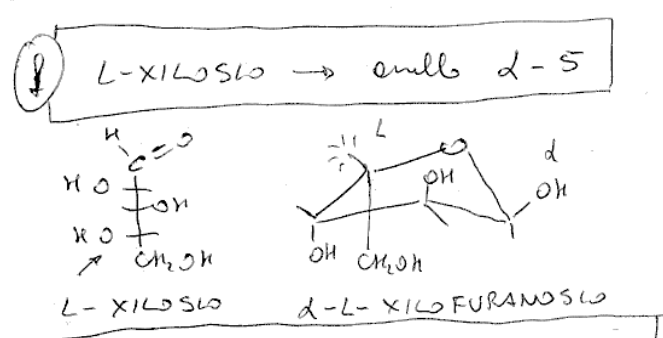 L-XILOSIO → anello α-5
H
C=O
HO
OH
HO
CH₂OH
L-XILOSIO
L
O
α
OH
OH
OH
CH₂OH
α-L-XILOFURANOSIO